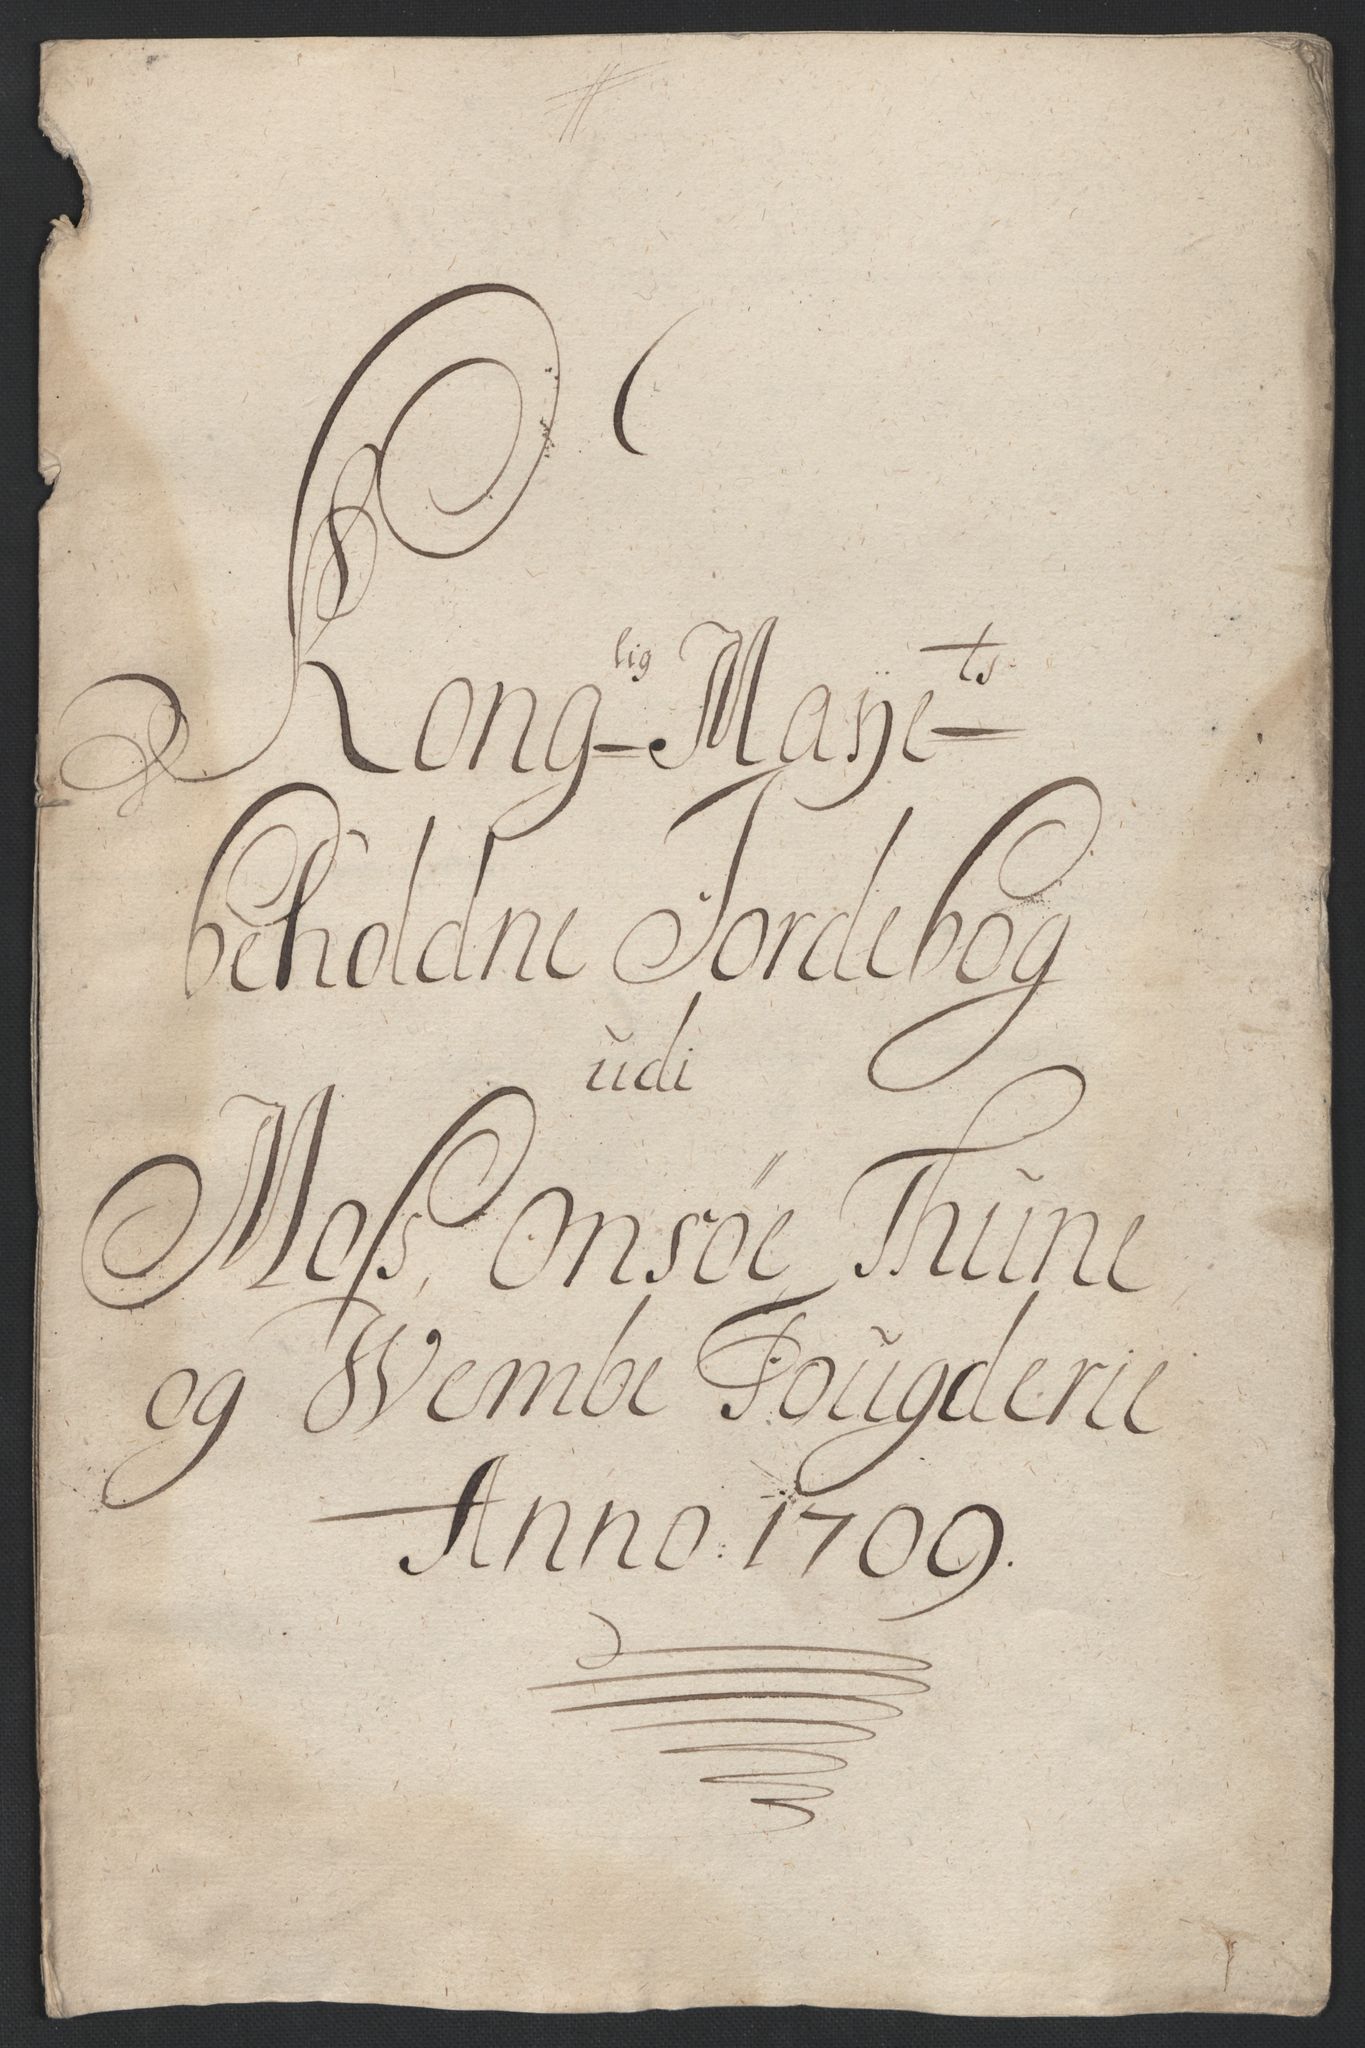 Kong^lig Maÿe^ts
beholdne Jordebog
udi
Moss, Onsöe, Thune,
og Wembe Fougderie
Anno: 1709.